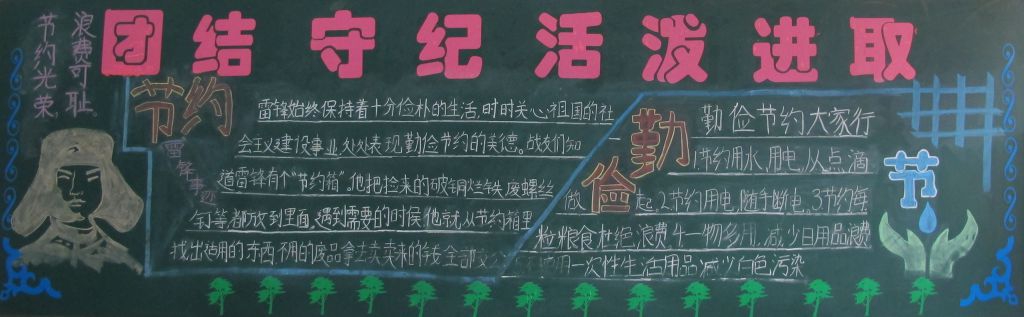 团结守纪活泼进取
浪费可耻。
节约光荣,
节约
雷锋事迹
雷锋始终保持着十分俭朴的生活,时时关心祖国的社
会主义建设事业,处处表现勤俭节约的美德。战友们知
道雷锋有个“节约箱”。他把捡来的破铜烂铁、废螺丝
钉等,都放到里面,遇到需要的时候,他就从节约箱里
找出能用的东西,不用的废品拿去卖,卖来的钱全部交公
勤俭
勤俭节约大家行
1节约用水、用电,从点滴
做起,2节约用电,随手断电,3节约每
粒粮食杜绝浪费4一物多用,减少日用品浪费
用一次性生活用品减少白色污染
节